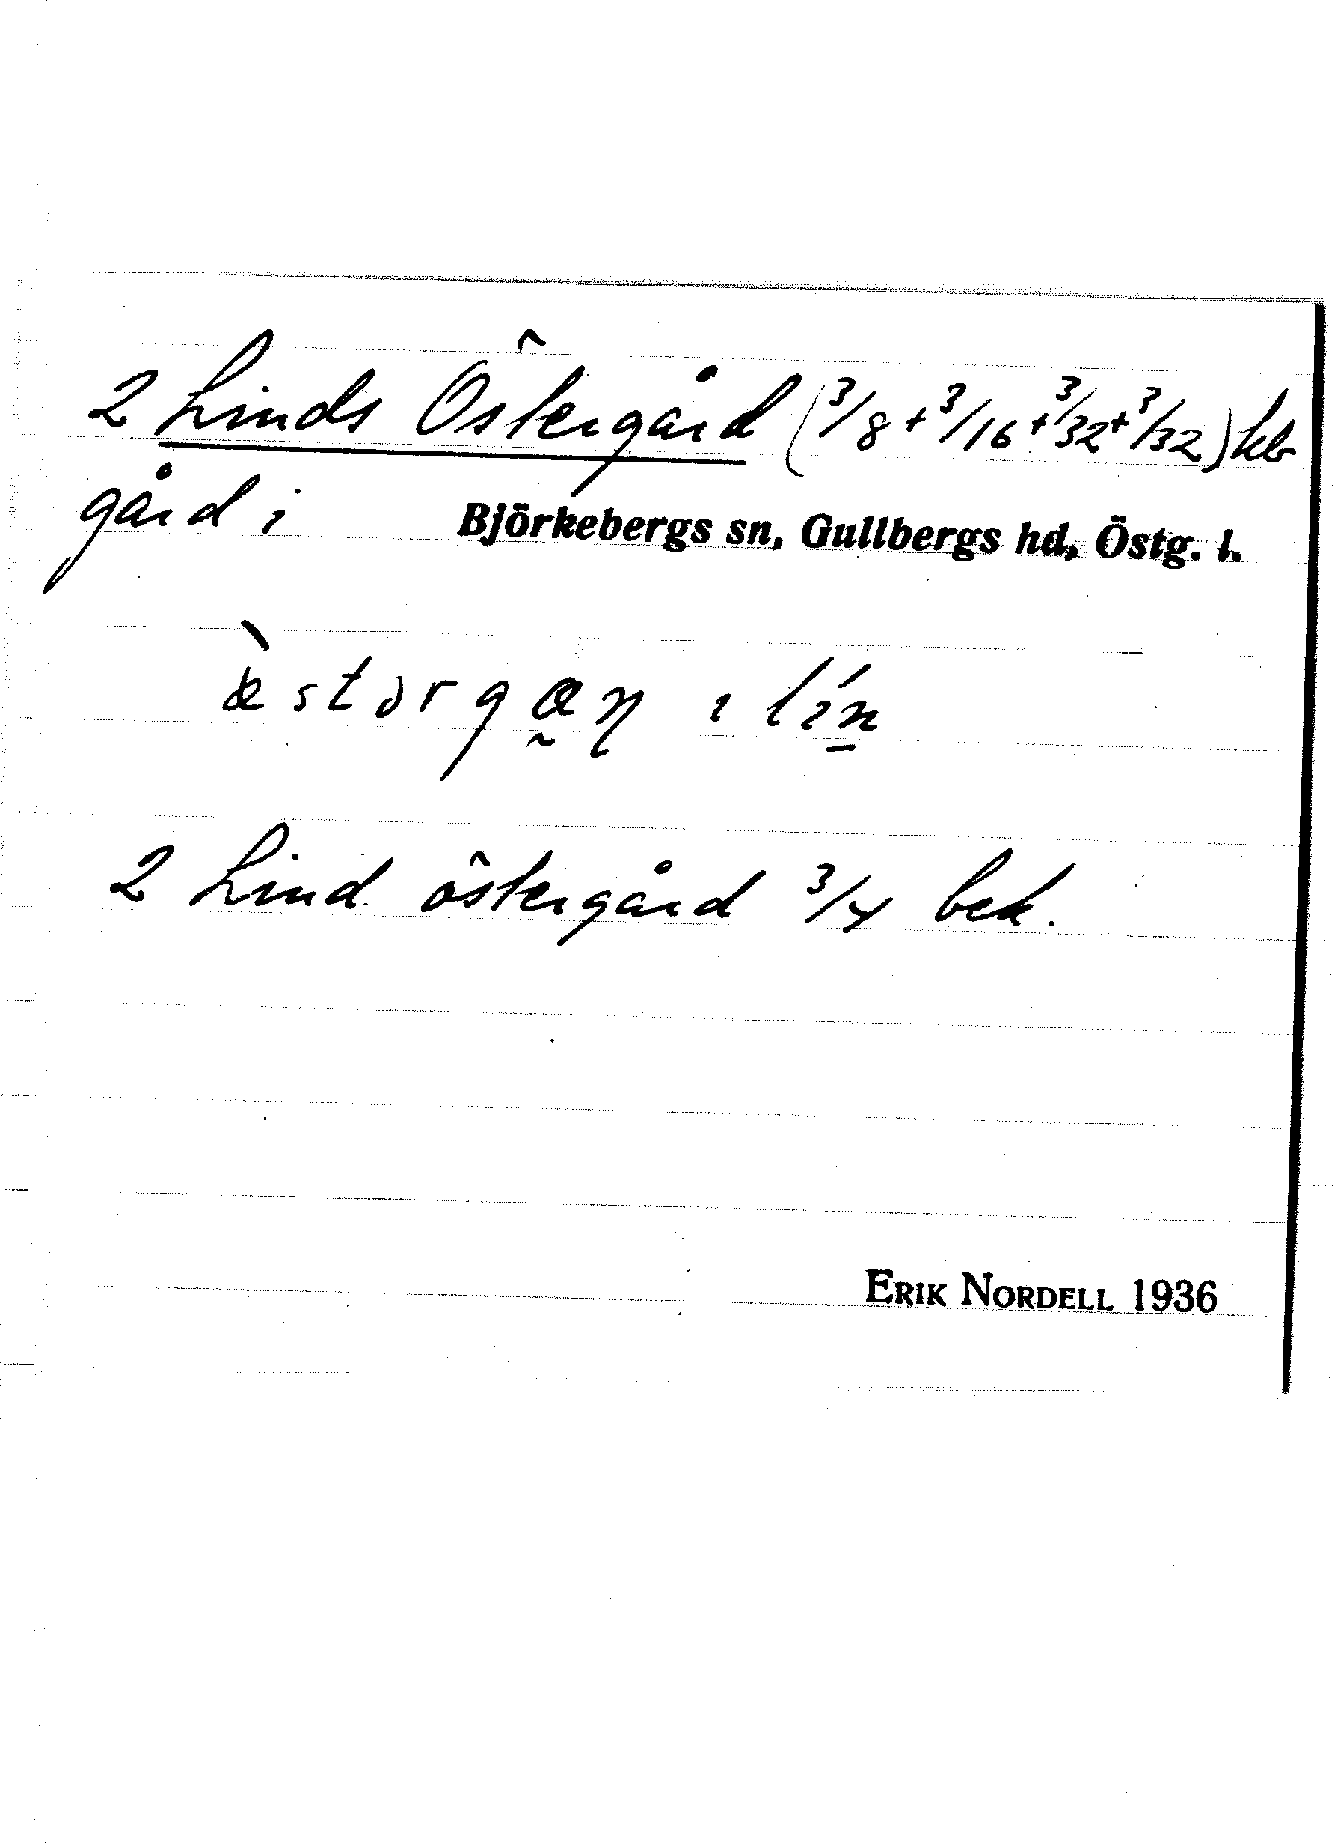 2 Linds Östergård (3/8 + 3/16 + 3/32 + 3/32)
gård i Björkebergs sn, Gullbergs hd, Östg. l.
2 Lind östergård 3/4 bek.
ERIK NORDELL 1936